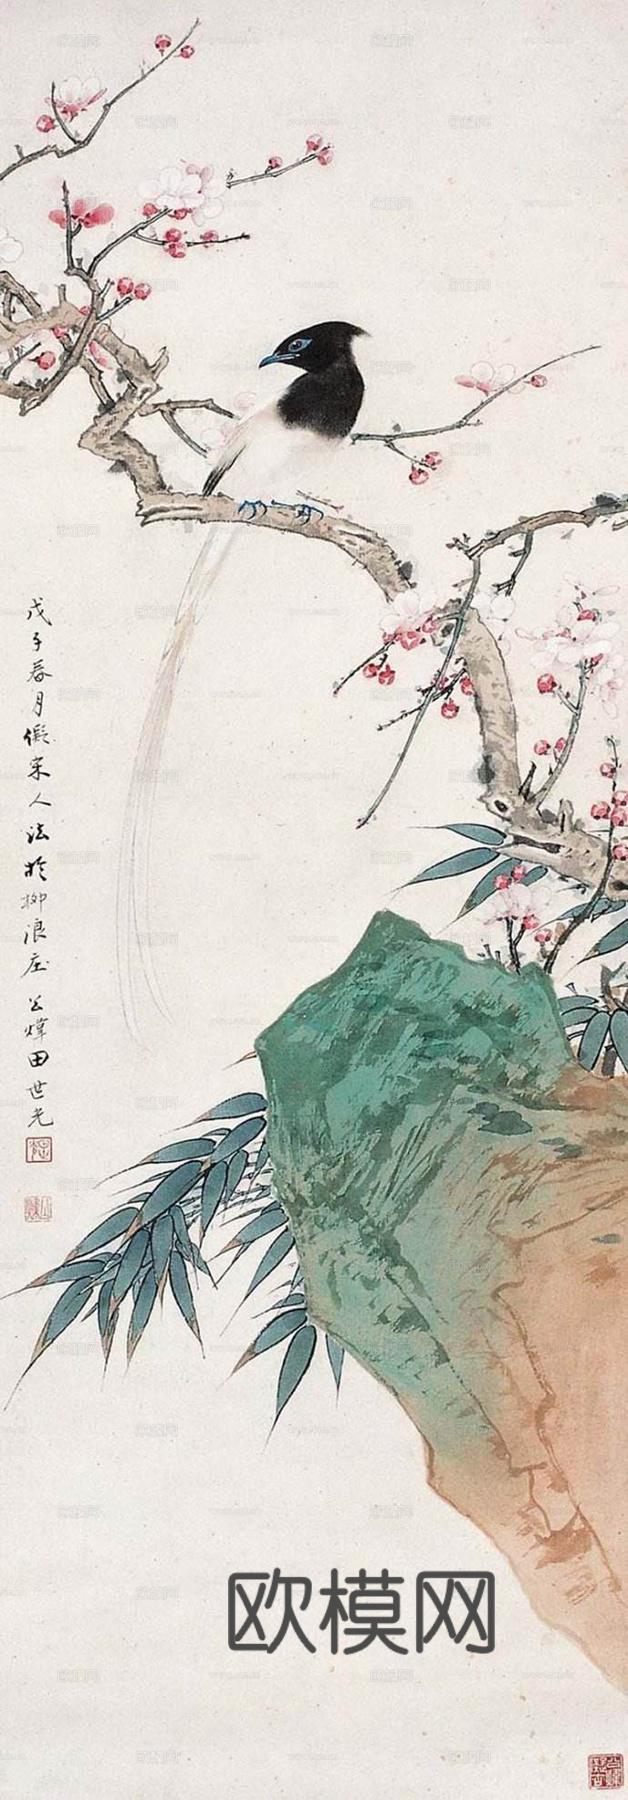 戊子春月儗宋人法於柳浪庄 公煒田世光
欧模网